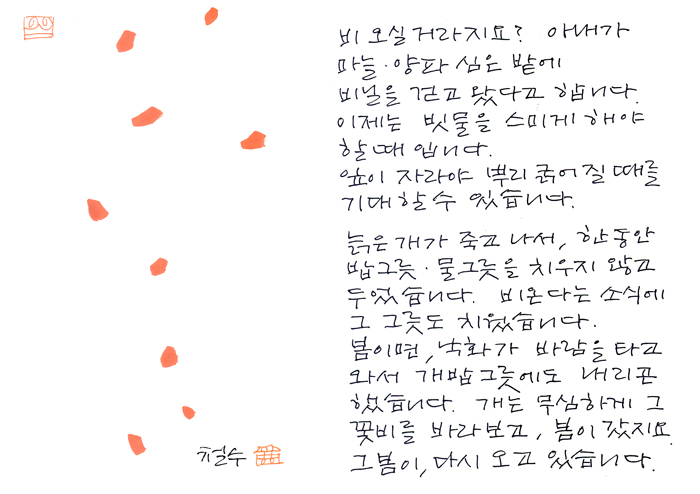 비 오실 거라지요? 아내가
마늘·양파 심은 밭에
비닐을 걷고 왔다고 합니다.
이제는 빗물을 스미게 해야
할 때 입니다.
잎이 자라야 뿌리 굵어질 때를
기대할 수 있습니다.
늙은 개가 죽고 나서, 한동안
밥그릇·물그릇을 치우지 않고
두었습니다. 비온다는 소식에
그 그릇도 치웠습니다.
봄이면, 낙화가 바람을 타고
와서 개밥그릇에도 내리곤
했습니다. 개는 무심하게 그
꽃비를 바라보고, 봄이 갔지요.
그 봄이, 다시 오고 있습니다.
철수